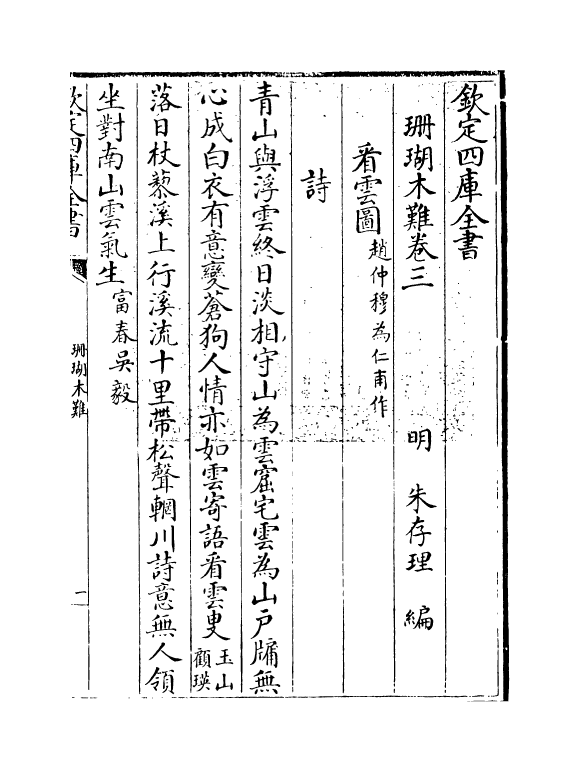 欽定四庫全書
珊瑚木難卷三
明 朱存理 編
看雲圖 趙仲穆為仁甫作
詩
青山與浮雲終日淡相守山為雲窟宅雲為山戶牖無
心成白衣有意變蒼狗人情亦如雲寄語看雲叟 玉山顧瑛
落日杖藜溪上行溪流十里帶松聲輞川詩意無人領
坐對南山雲氣生 富春吳毅
欽定四庫全書
珊瑚木難